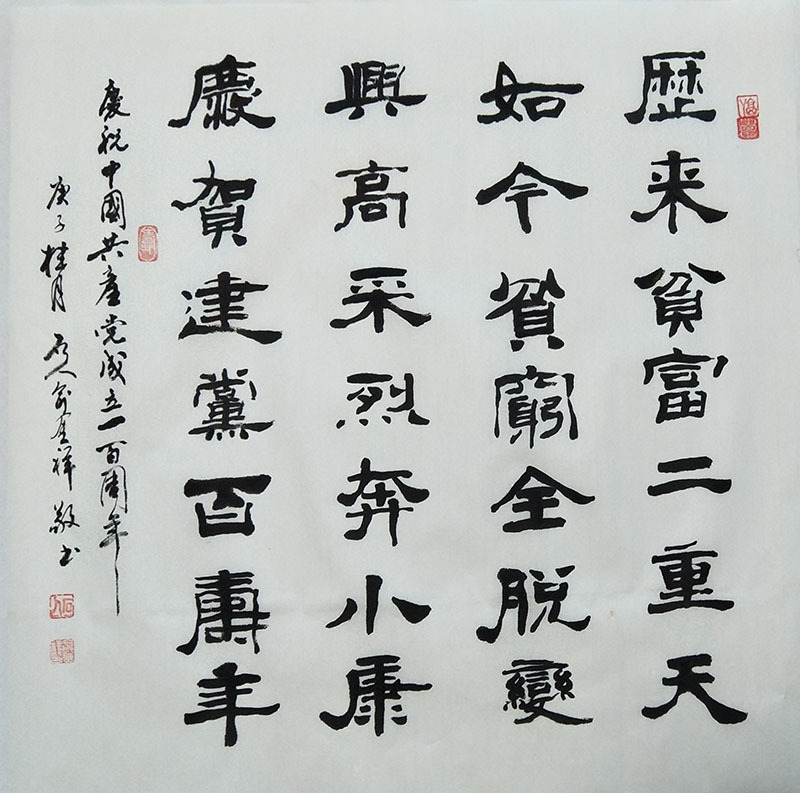 歷来貧富二重天
如今貧窮全脱變
興高采烈奔小康
慶賀建黨百壽年
慶祝中國共產党成立一百周年
庚子桂月 石人俞在祥敬书